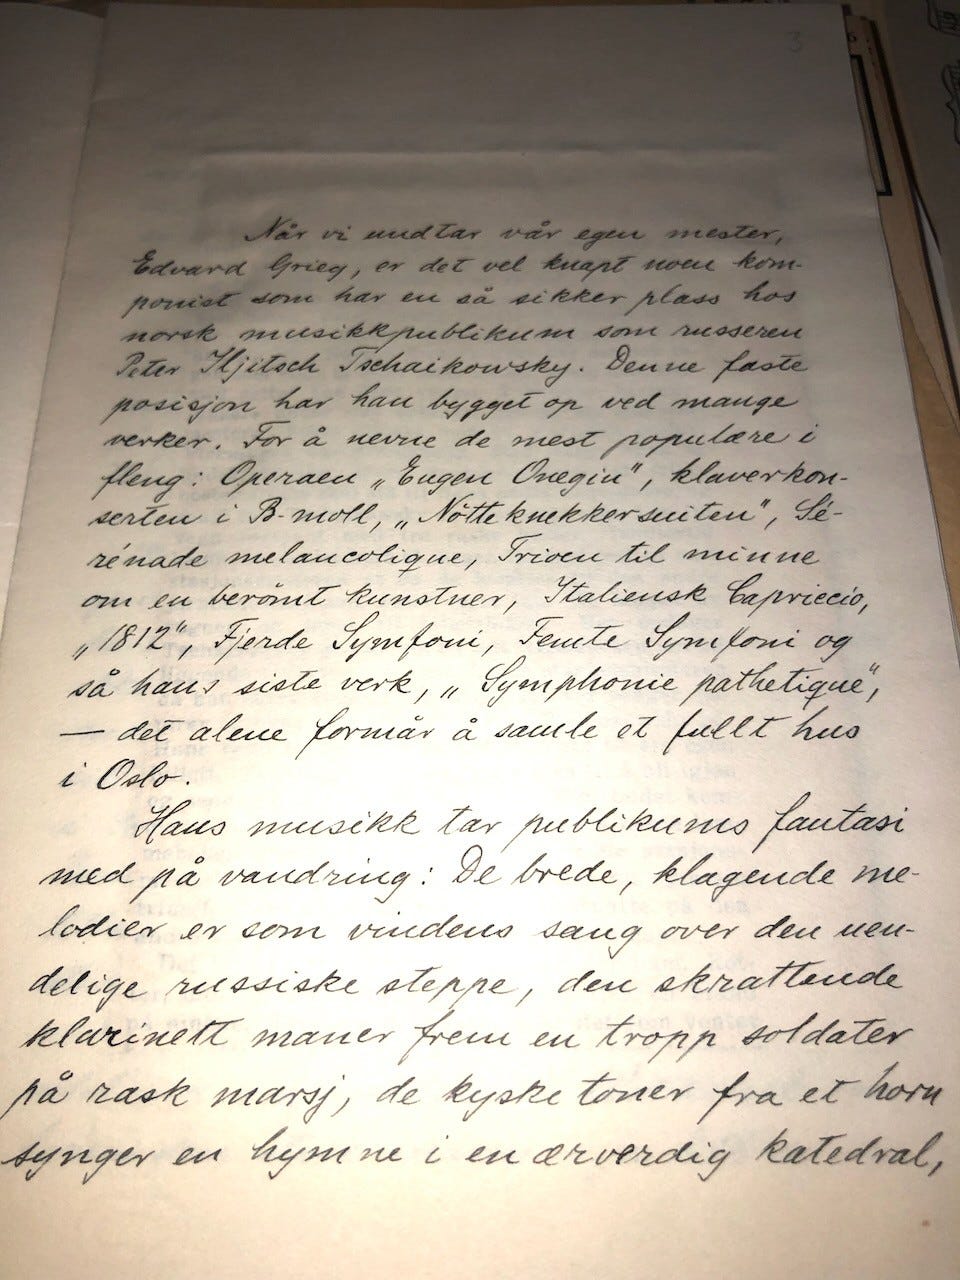 3
Når vi undtar vår egen mester,
Edvard Grieg, er det vel knapt noen kom-
ponist som har en så sikker plass hos
norsk musikkpublikum som russeren
Peter Iljitsch Tschaikowsky. Denne faste
posisjon har han bygget op ved mange
verker. For å nevne de mest populære i
fleng: Operaen „Eugen Onegin", klaverkon-
serten i B-moll, „Nötteknekkersuiten", Sé-
rénade melancolique, Trioen til minne
om en berömt kunstner, Italiensk Capriccio,
„1812", Fjerde Symfoni, Femte Symfoni og
så hans siste verk, „Symphonie pathetique",
— det alene formår å samle et fullt hus
i Oslo.
Hans musikk tar publikums fantasi
med på vandring: De brede, klagende me-
lodier er som vindens sang over den uen-
delige russiske steppe, den skrattende
klarinett maner frem en tropp soldater
på rask marsj, de kyske toner fra et horn
synger en hymne i en ærverdig katedral,